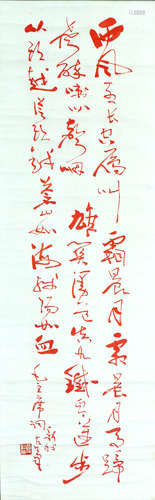 西风烈长空雁叫霜晨月霜晨月马蹄
声碎喇叭声咽 雄关漫道真如铁而今迈步
从头越从头越苍山如海残阳如血
毛主席词